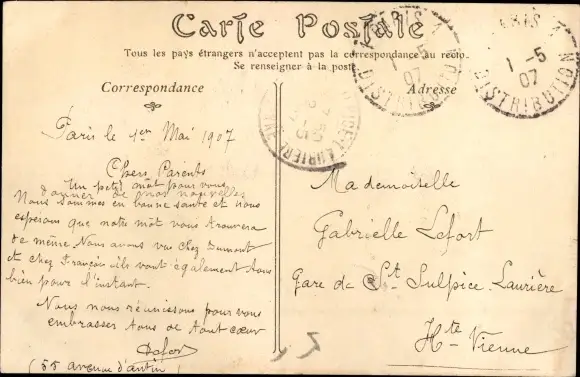 Carte Postale
Tous les pays étrangers n'acceptent pas la correspondance au recto.
Se renseigner à la poste
Correspondance
Adresse
PARIS
1 -5
07
DISTRIBUTION
PARIS
1 -5
07
DISTRIBUTION
Paris le 1er Mai 1907
Chers Parents
Un petit mot pour vous
donner de nos nouvelles
Nous sommes en bonne santé et nous
espérons que notre mot vous trouvera
de même Nous avons vu chez Dumont
et chez François ils vont également tous
bien pour l'instant.
Nous nous réunissons pour vous
embrasser tous de tout coeur
(55 avenue d'antin)
Mademoiselle
Gabrielle Lefort
Gare de St Sulpice Laurière
Hte-Vienne